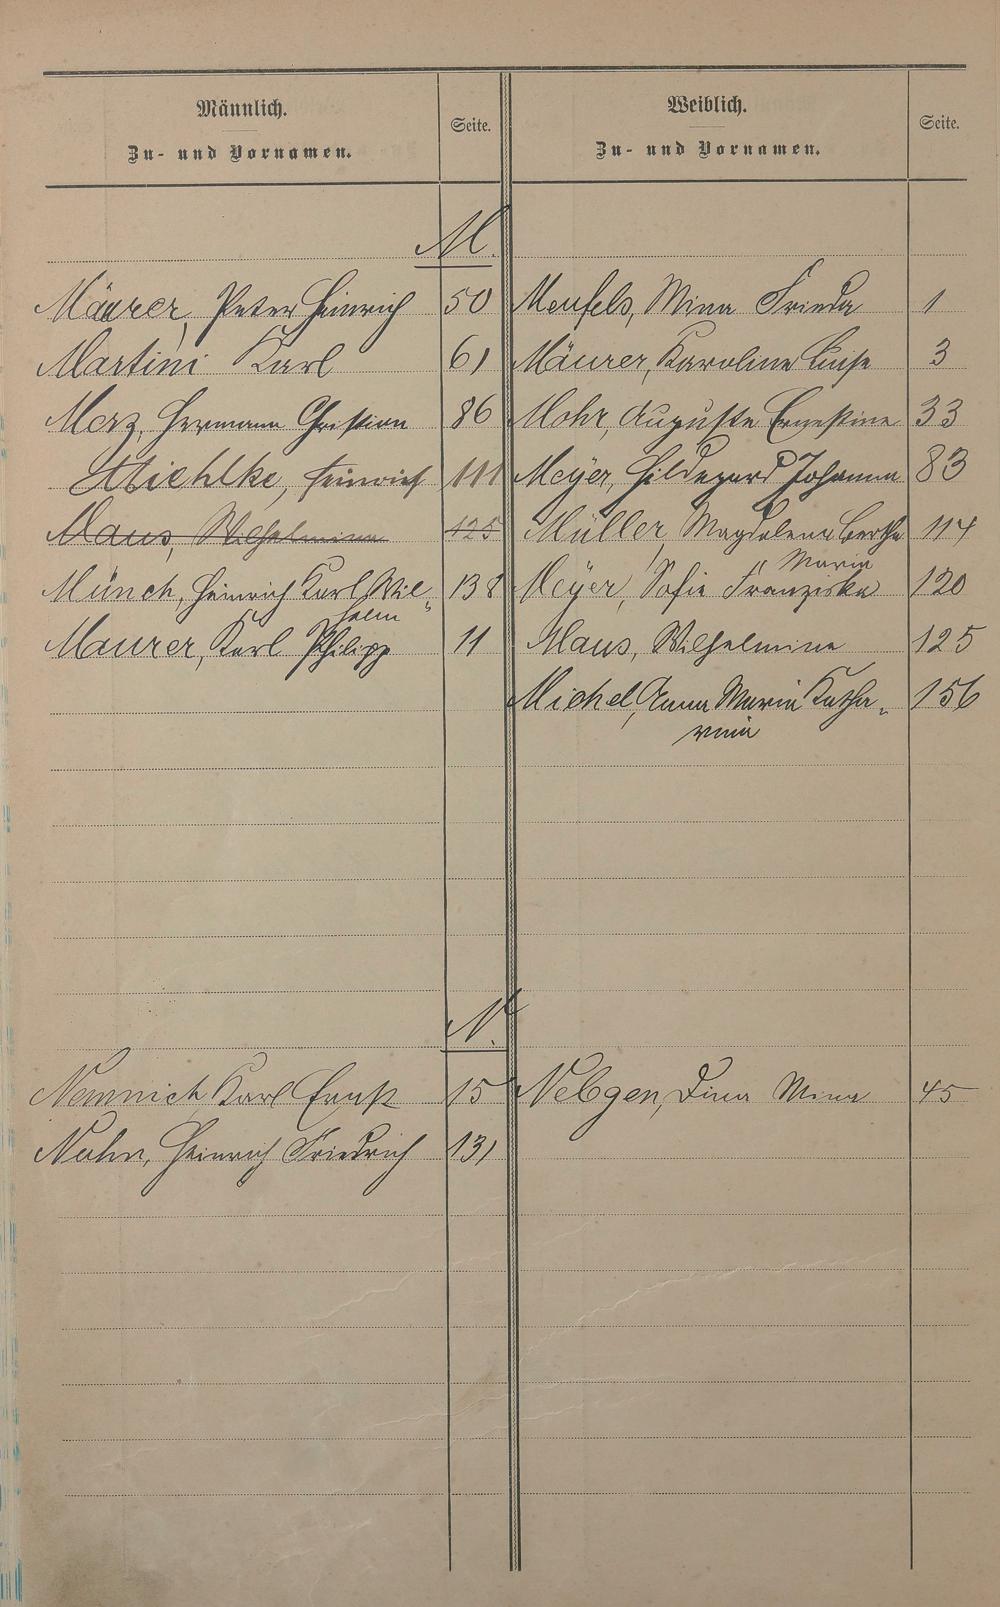 Männlich.
Zu- und Vornamen.
Seite.
Weiblich.
Zu- und Vornamen.
Seite.
M.
Mäurer, Peter Heinrich 50
Martini Karl 61
Merz, Hermann Christian 86
Miehlke, Heinrich 111
Maus, Wilhelmine 125
Münch, Heinrich Karl Wil- 138
helm
Maurer, Karl Philipp 11
Menfels, Mina Frieda 1
Mäurer, Karoline Luise 3
Mohr, Auguste Ernestine 33
Meyer, Hildegard Johanna 83
Müller, Magdalena Bertha 114
Maria
Meyer, Sofie Franziska 120
Maus, Wilhelmine 125
Michel, Anna Maria Katha- 156
rina
N.
Nemnich Karl Ernst 15
Nahn, Heinrich Friedrich 131
Nebgen, Dina Mina 45